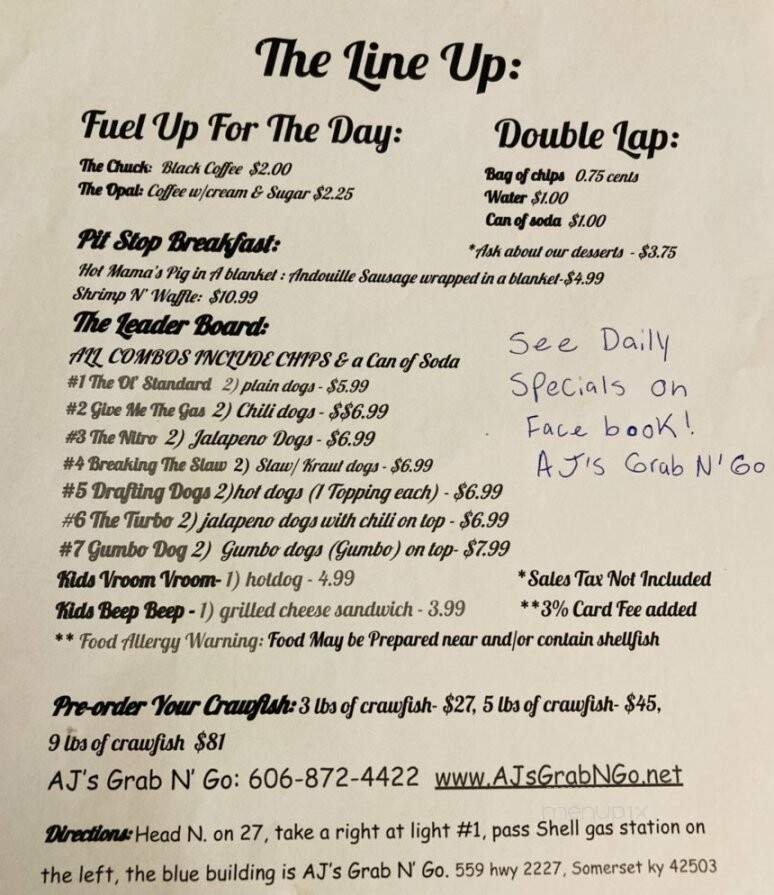 The Line Up:
Fuel Up For The Day:
The Chuck: Black Coffee $2.00
The Opal: Coffee w/cream & Sugar $2.25
Double Lap:
Bag of chips 0.75 cents
Water $1.00
Can of soda $1.00
*Ask about our desserts - $3.75
Pit Stop Breakfast:
Hot Mama's Pig in A blanket : Andouille Sausage wrapped in a blanket-$4.99
Shrimp N' Waffle: $10.99
The Leader Board:
ALL COMBOS INCLUDE CHIPS & a Can of Soda
#1 The Ol' Standard 2) plain dogs - $5.99
#2 Give Me The Gas 2) Chili dogs - $$6.99
#3 The Nitro 2) Jalapeno Dogs - $6.99
#4 Breaking The Slaw 2) Slaw/ Kraut dogs - $6.99
#5 Drafting Dogs 2)hot dogs (1 Topping each) - $6.99
#6 The Turbo 2) jalapeno dogs with chili on top - $6.99
#7 Gumbo Dog 2) Gumbo dogs (Gumbo) on top- $7.99
Kids Vroom Vroom- 1) hotdog - 4.99
Kids Beep Beep - 1) grilled cheese sandwich - 3.99
See Daily
Specials on
Face book!
AJ's Grab N' Go
*Sales Tax Not Included
**3% Card Fee added
** Food Allergy Warning: Food May be Prepared near and/or contain shellfish
Pre-order Your Crawfish: 3 lbs of crawfish- $27, 5 lbs of crawfish- $45,
9 lbs of crawfish $81
AJ's Grab N' Go: 606-872-4422 www.AJsGrabNGo.net
menupix
Directions: Head N. on 27, take a right at light #1, pass Shell gas station on
the left, the blue building is AJ's Grab N' Go. 559 hwy 2227, Somerset ky 42503